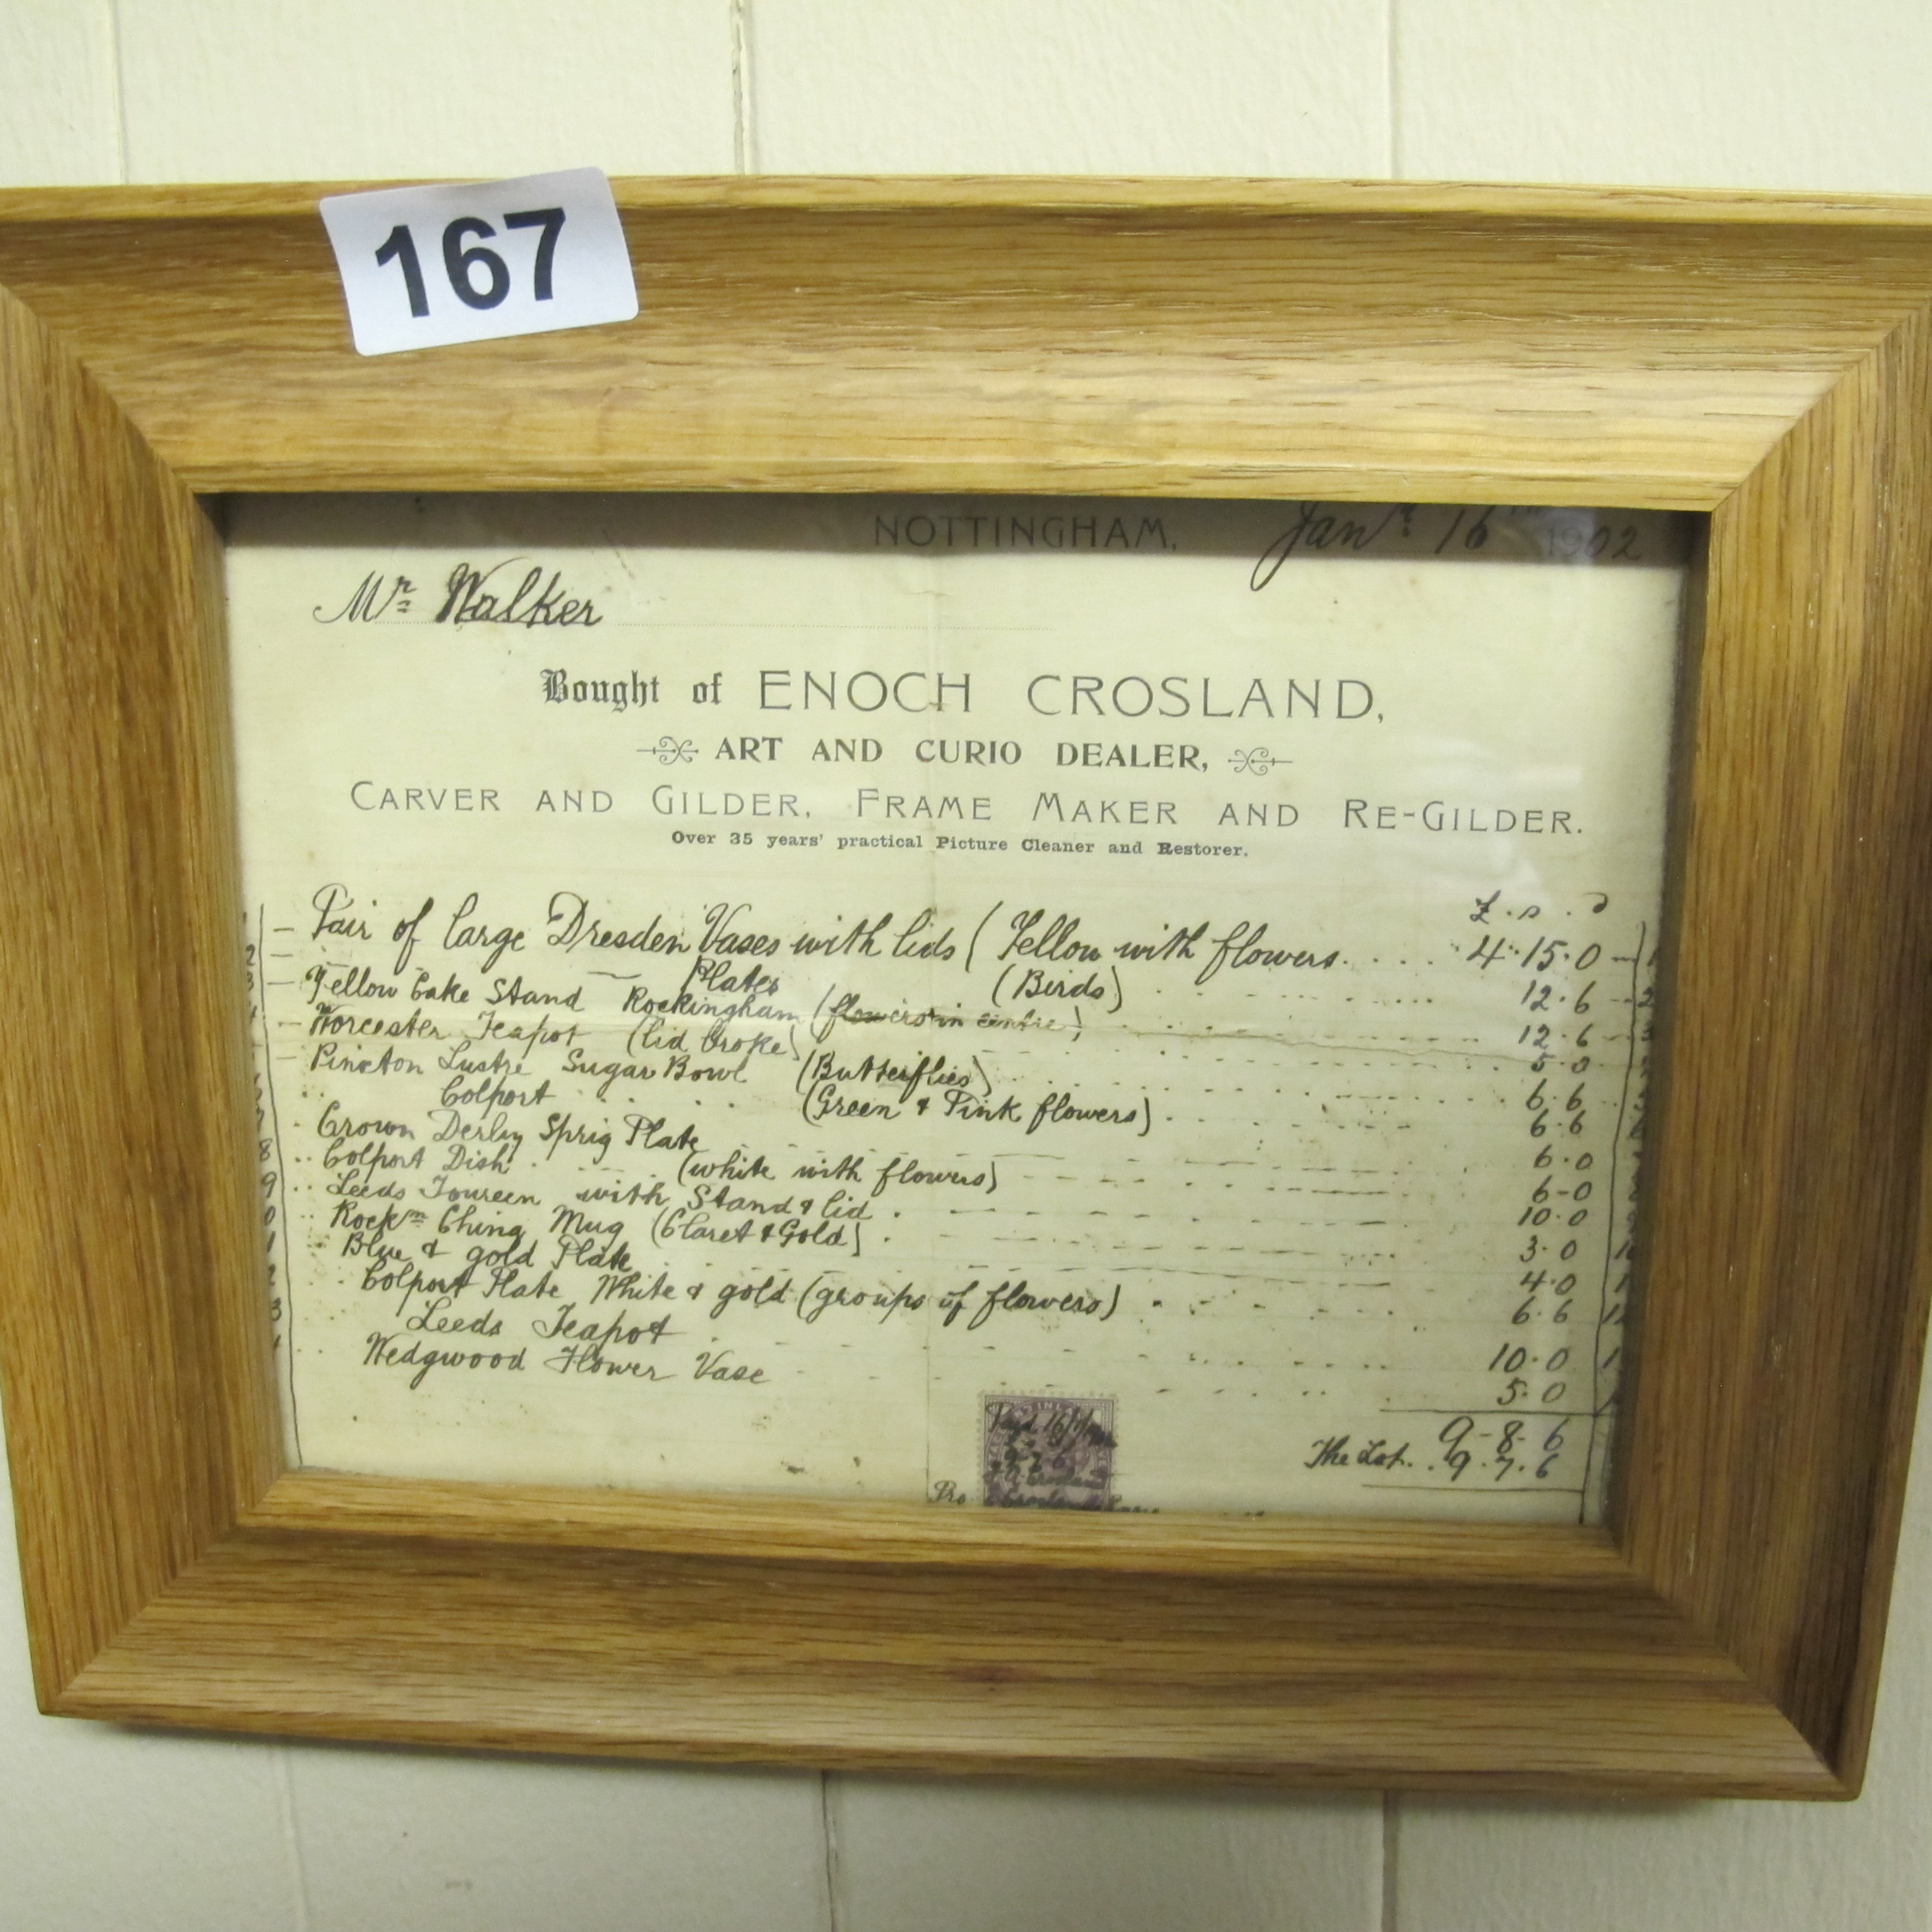 167
NOTTINGHAM, Janr 16th 1902
Mr Walker
Bought of ENOCH CROSLAND,
ART AND CURIO DEALER,
CARVER AND GILDER, FRAME MAKER AND RE-GILDER.
Over 35 years' practical Picture Cleaner and Restorer.
£ . s . d
Pair of large Dresden Vases with lids (Yellow with flowers. 4.15.0
Plates (Birds) 12.6
Yellow Cake Stand Rockingham (flowers in centre) 12.6
Worcester Teapot (lid broke) 5.0
Pinxton Lustre Sugar Bowl (Butterflies) 6.6
Colport (Green & Pink flowers) 6.6
Crown Derby Sprig Plate 6.0
Colport Dish (white with flowers) 6-0
Leeds Toureen with Stand & lid 10.0
Rockm China Mug (Claret & Gold) 3.0
Blue & gold Plate 4.0
Colport Plate White & gold (groups of flowers) 6.6
Leeds Teapot 10.0
Wedgwood Flower Vase 5.0
9-8-6
The Lot. 9.7.6
Pro